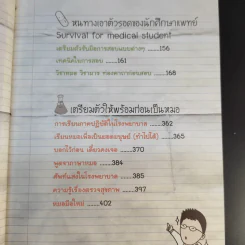 หนทางเอาตัวรอดของนักศึกษาแพทย์
Survival for medical student
เตรียมตัวรับมือการสอบแบบต่างๆ ......156
เทคนิคในการสอบ ......161
วิชาหมอ วิชามาร ท่องตำราก่อนสอบ ......168
เตรียมตัวให้พร้อมก่อนเป็นหมอ
การเรียนภาคปฏิบัติในโรงพยาบาล ......362
เรียนหมอเพื่อเป็นเทพมนุษย์ (ทำไปได้) ......365
บอกไว้ก่อน เดี๋ยวงงเจอ ......370
พูดจาภาษาหมอ ......384
ศัพท์แสงในโรงพยาบาล ......385
ความรู้เรื่องตรวจสุขภาพ ......397
402